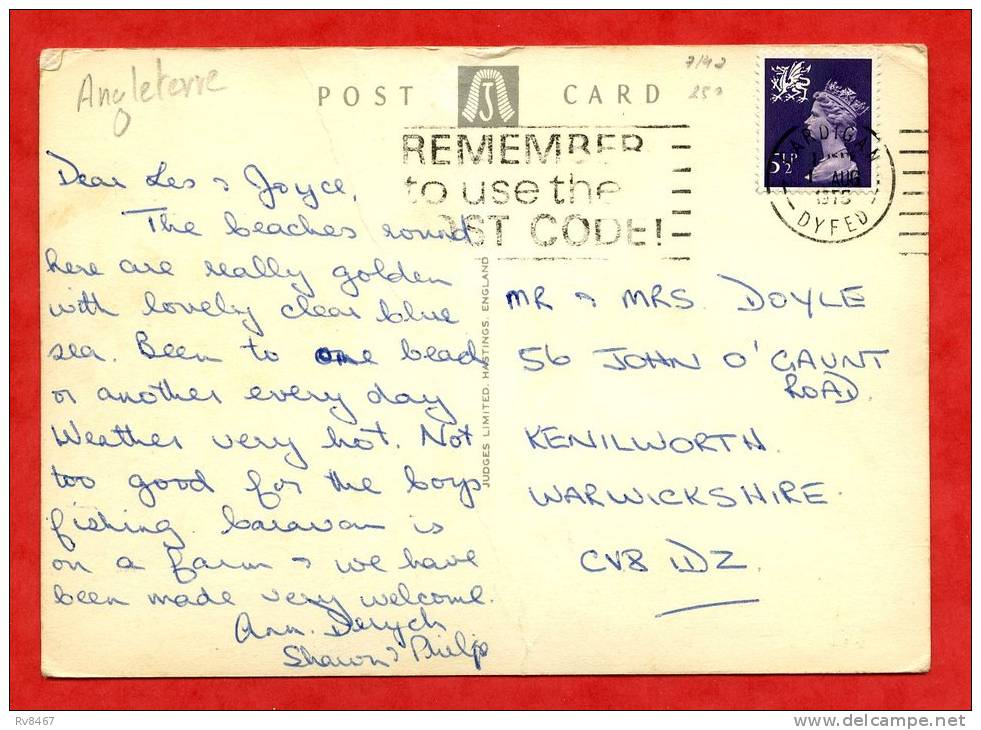 Angleterre
POST CARD
J
REMEMBER
to use the
POST CODE!
5½P
CARDIGAN
AUG
1975
DYFED
Dear Les & Joyce,
The beaches round
here are really golden
with lovely clear blue
sea. Been to one beach
or another every day
Weather very hot. Not
too good for the boys
fishing. Caravan is
on a farm & we have
been made very welcome.
Ann. Derych
Shawn & Philip
JUDGES LIMITED, HASTINGS, ENGLAND
MR & MRS. DOYLE
56 JOHN O'GAUNT
ROAD.
KENILWORTH
WARWICKSHIRE.
CV8 1DZ.
Rv8467
delcampe.net